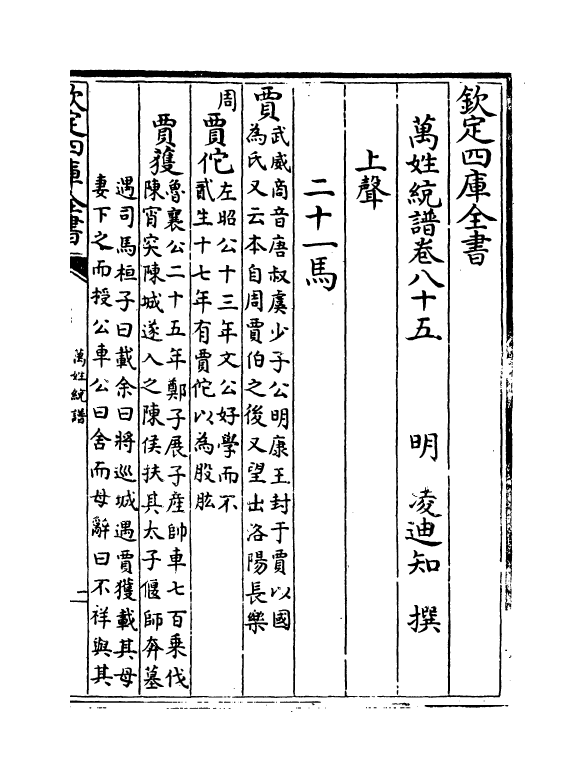 欽定四庫全書
萬姓統譜卷八十五　明　凌迪知　撰
上聲
二十一馬
賈武威商音唐叔虞少子公明康王封于賈以國
為氏又云本自周賈伯之後又望出洛陽長樂
周
賈佗左昭公十三年文公好學而不
貳生十七年有賈佗以為股肱
賈獲魯襄公二十五年鄭子展子產帥車七百乗伐
陳宵突陳城遂入之陳侯扶其太子偃師奔墓
遇司馬桓子曰載余曰將巡城遇賈獲載其母
妻下之而授公車公曰舍而母辭曰不祥與其
欽定四庫全書
萬姓統譜